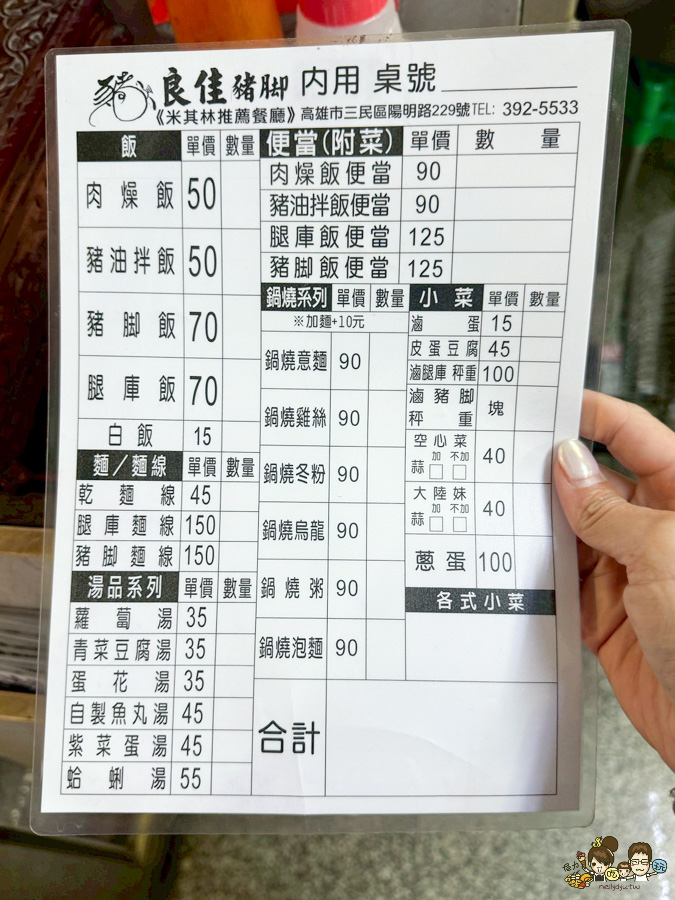 豬 良佳豬脚 內用 桌號
《米其林推薦餐廳》高雄市三民區陽明路229號TEL: 392-5533
飯 單價 數量
肉燥飯 50
豬油拌飯 50
豬脚飯 70
腿庫飯 70
白飯 15
麵／麵線 單價 數量
乾麵線 45
腿庫麵線 150
豬脚麵線 150
湯品系列 單價 數量
蘿蔔湯 35
青菜豆腐湯 35
蛋花湯 35
自製魚丸湯 45
紫菜蛋湯 45
蛤蜊湯 55
便當(附菜) 單價 數量
肉燥飯便當 90
豬油拌飯便當 90
腿庫飯便當 125
豬脚飯便當 125
鍋燒系列 單價 數量
※加麵+10元
鍋燒意麵 90
鍋燒雞絲 90
鍋燒冬粉 90
鍋燒烏龍 90
鍋燒粥 90
鍋燒泡麵 90
小菜 單價 數量
滷蛋 15
皮蛋豆腐 45
滷腿庫 秤重 100
滷豬脚
秤重 塊
空心菜 40
蒜 加 不加
大陸妹 40
蒜 加 不加
蔥蛋 100
各式小菜
合計
吃 玩
neilydyu.tw